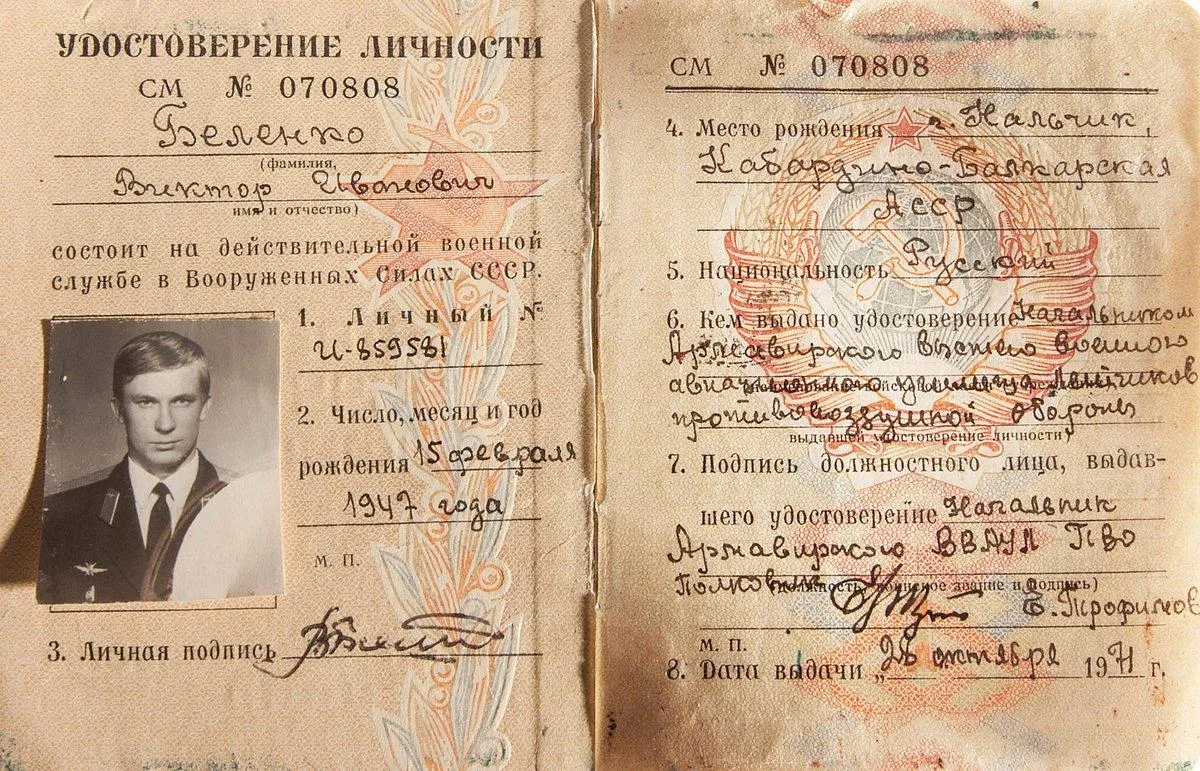 УДОСТОВЕРЕНИЕ ЛИЧНОСТИ
СМ № 070808
Беленко
(фамилия,
Виктор Иванович
имя и отчество)
состоит на действительной военной
службе в Вооруженных Силах СССР.
1. Личный №
И-859581
2. Число, месяц и год
рождения 15 февраля
1947 года
М. П.
3. Личная подпись
СМ № 070808
4. Место рождения г. Нальчик,
Кабардино-Балкарская
АССР
5. Национальность Русский
6. Кем выдано удостоверение Начальником
Армавирского высшего военного
авиационного училища летчиков
противовоздушной обороны
выдавшей удостоверение личности)
7. Подпись должностного лица, выдав-
шего удостоверение Начальник
Армавирского ВВАУЛ ПВО
Полковник (должность, воинское звание и подпись) Е. Трофимов
М. П.
8. Дата выдачи „28 октября 1971 г.